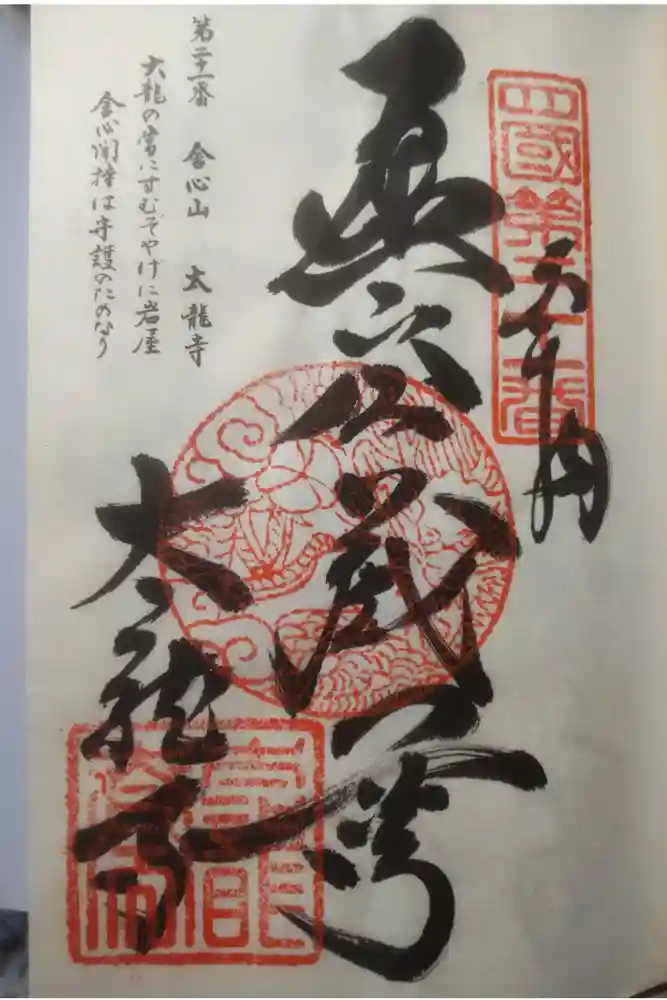 四國第二十一番
虚空蔵
太龍寺
第二十一番　舎心山　太龍寺
大龍の常にすむぞやげに岩屋
舎心聞持は守護のためなり